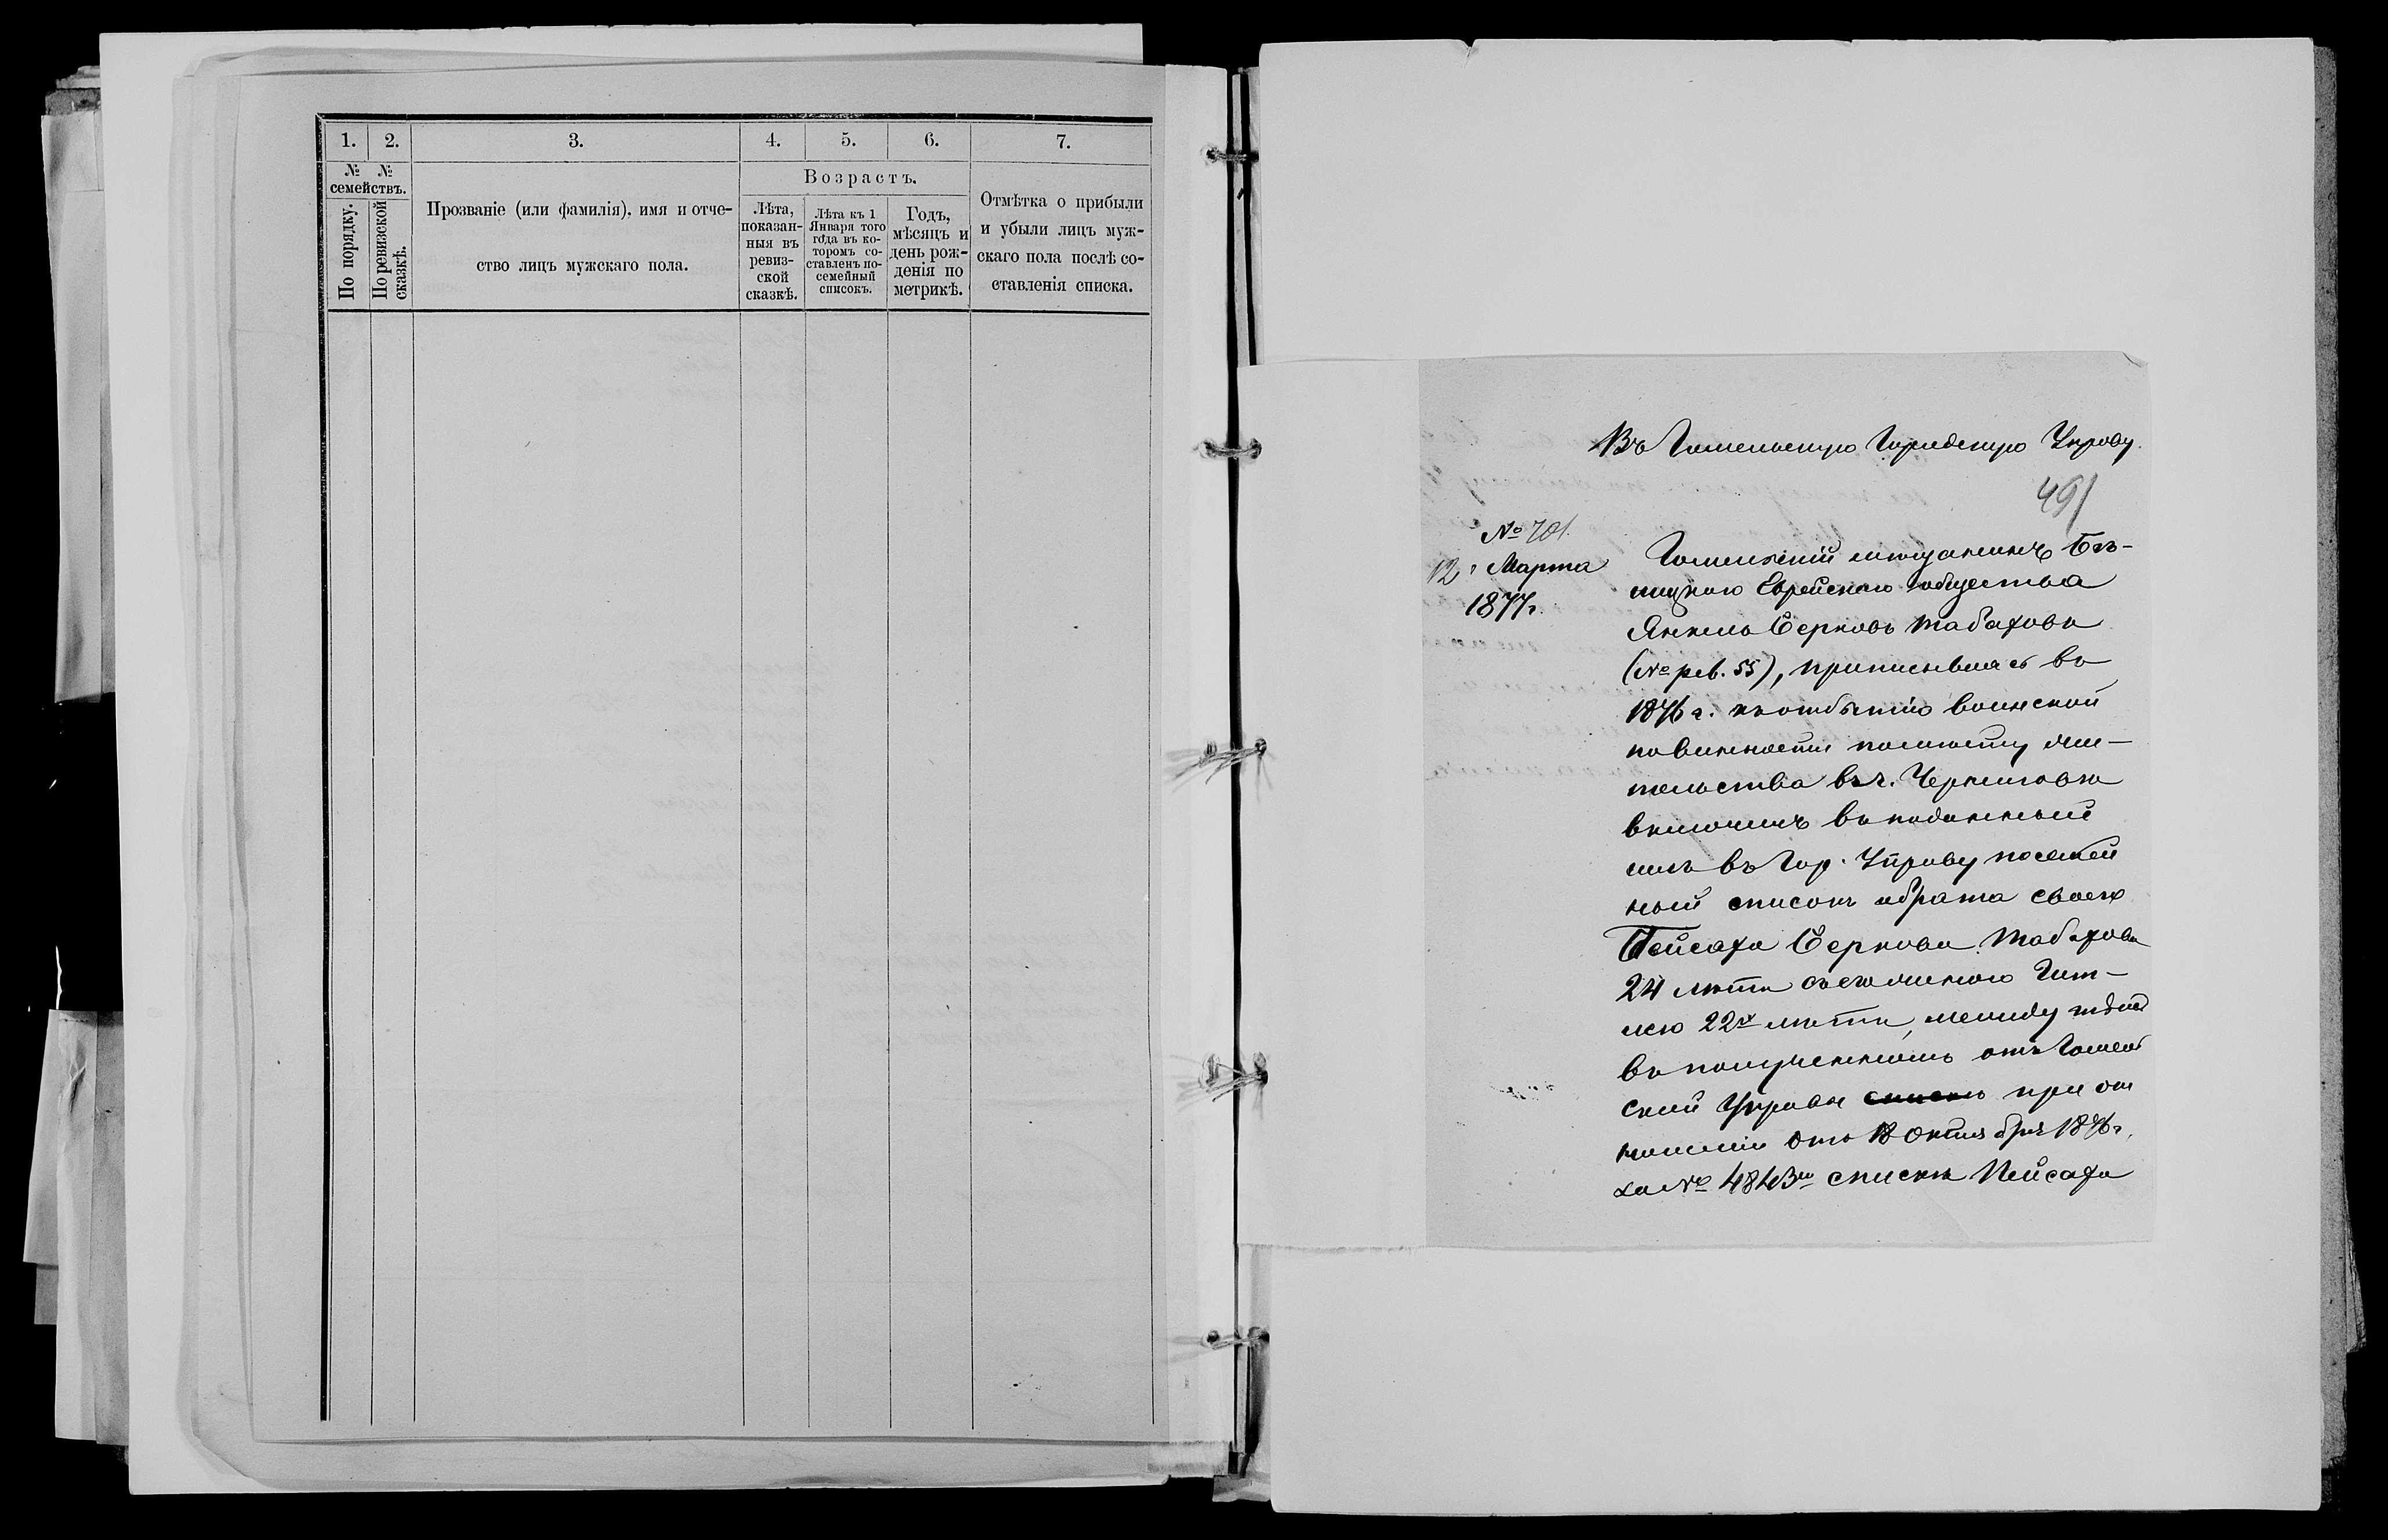 1. 2. 3. 4. 5. 6. 7.
№ № семействъ.
По порядку.
По ревизской сказкѣ.
Прозваніе (или фамилія), имя и отче-
ство лицъ мужскаго пола.
Возрастъ.
Лѣта,
показан-
ныя въ
ревиз-
ской
сказкѣ.
Лѣта къ 1
Января того
года въ ко-
торомъ со-
ставленъ по-
семейный
списокъ.
Годъ,
мѣсяцъ и
день рож-
денія по
метрикѣ.
Отмѣтка о прибыли
и убыли лицъ муж-
скаго пола послѣ со-
ставленія списка.
Въ Гомельскую Городскую Управу
491
№ 701.
12 Марта
1877г.
Гомельскій мѣщанинъ Бѣ-
лицкаго Еврейскаго общества
Янкель Берковъ Табаховъ
(№ рев. 55), приписываясь въ
1876 г. къ отбытію воинской
повинности по мѣсту жи-
тельства въ г. Черниговѣ
включилъ въ поданный
имъ въ Гор. Управу посемей
ный списокъ и брата своего
Пейсаха Беркова Табахова
24 лѣтъ съ его женою
22х лѣтъ, между тѣмъ
въ полученномъ отъ Гомель
ской Управы списке при от
ношеніи отъ 18 Октября 1876г.
за № 4843м спискѣ Пейсаха